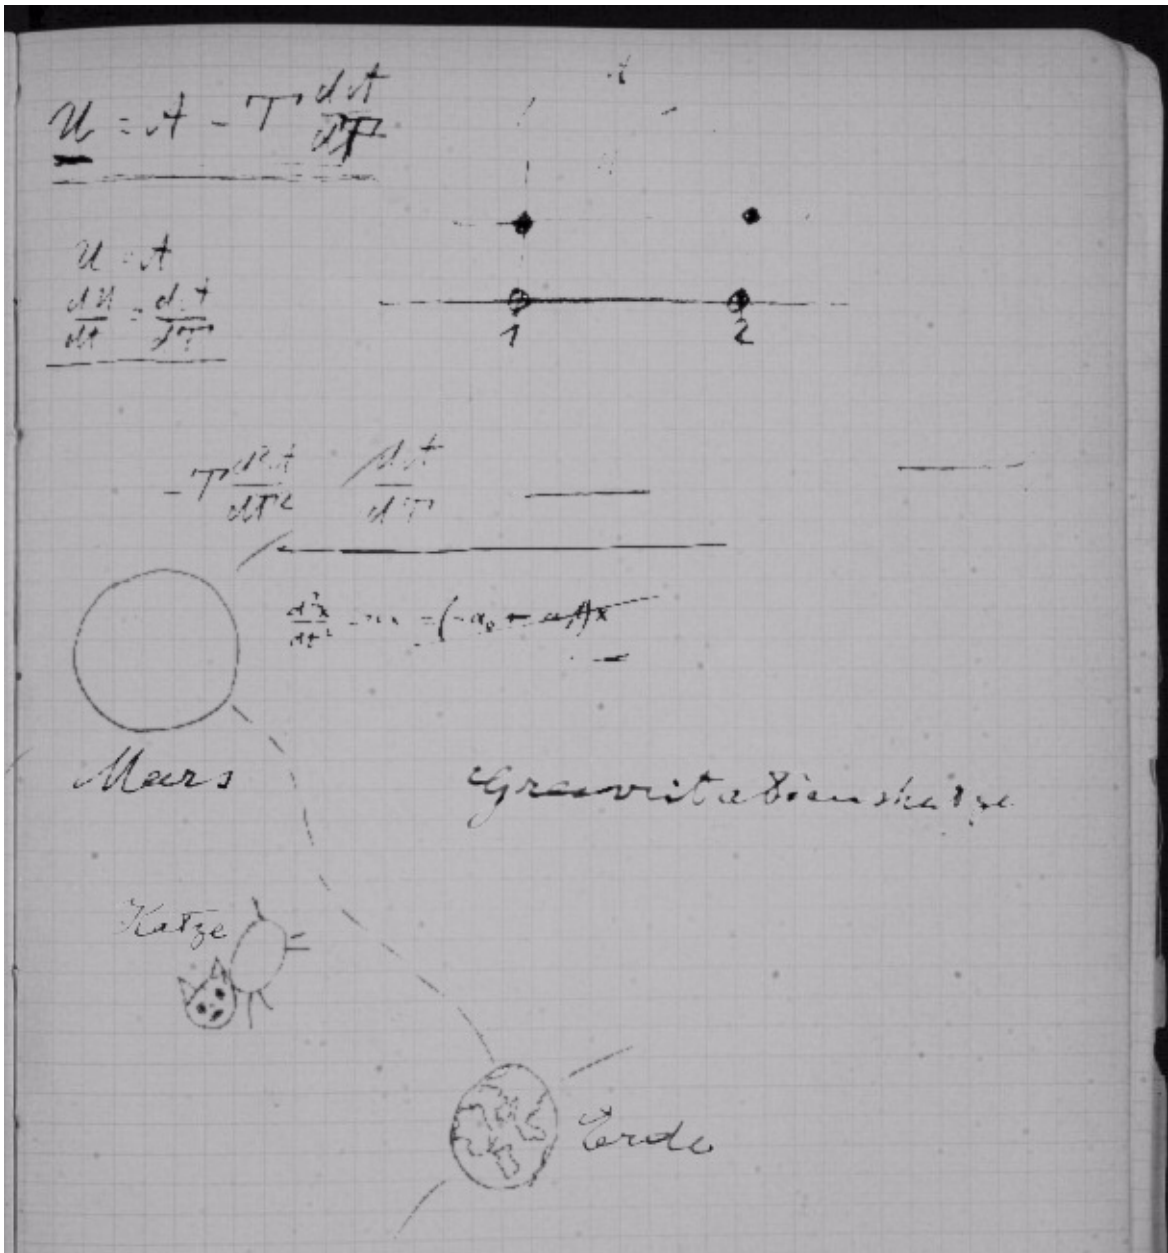 A
U = A - T dA/dT
U = A
dU/dt = dA/dT
1 2
- T d²A/dT² dA/dT
Mars
Gravitationskatze
Katze
Erde